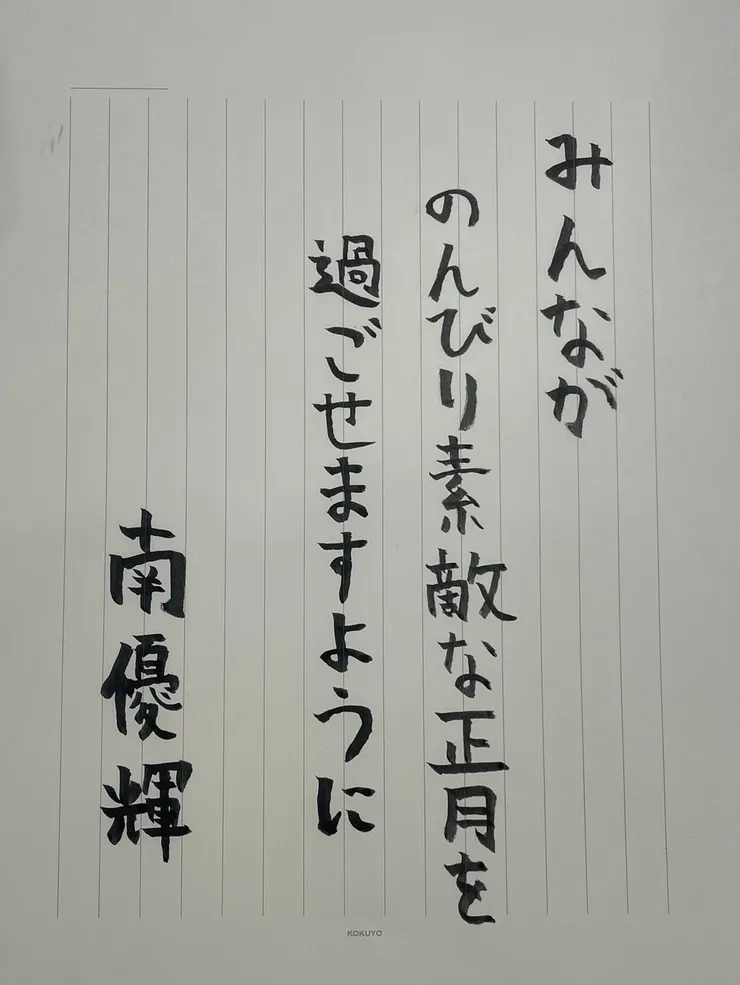 みんなが
のんびり素敵な正月を
過ごせますように
南優輝
KOKUYO